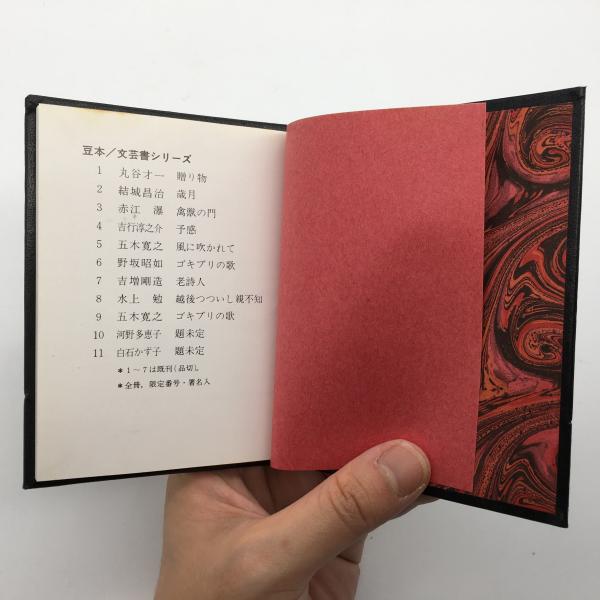 豆本／文芸書シリーズ
1 丸谷才一 贈り物
2 結城昌治 歳月
3 赤江 瀑 禽獣の門
4 吉行淳之介 予感
5 五木寛之 風に吹かれて
6 野坂昭如 ゴキブリの歌
7 吉増剛造 老詩人
8 水上 勉 越後つついし親不知
9 五木寛之 ゴキブリの歌
10 河野多恵子 題未定
11 白石かず子 題未定
＊1～7は既刊(品切)。
＊全冊，限定番号・署名入